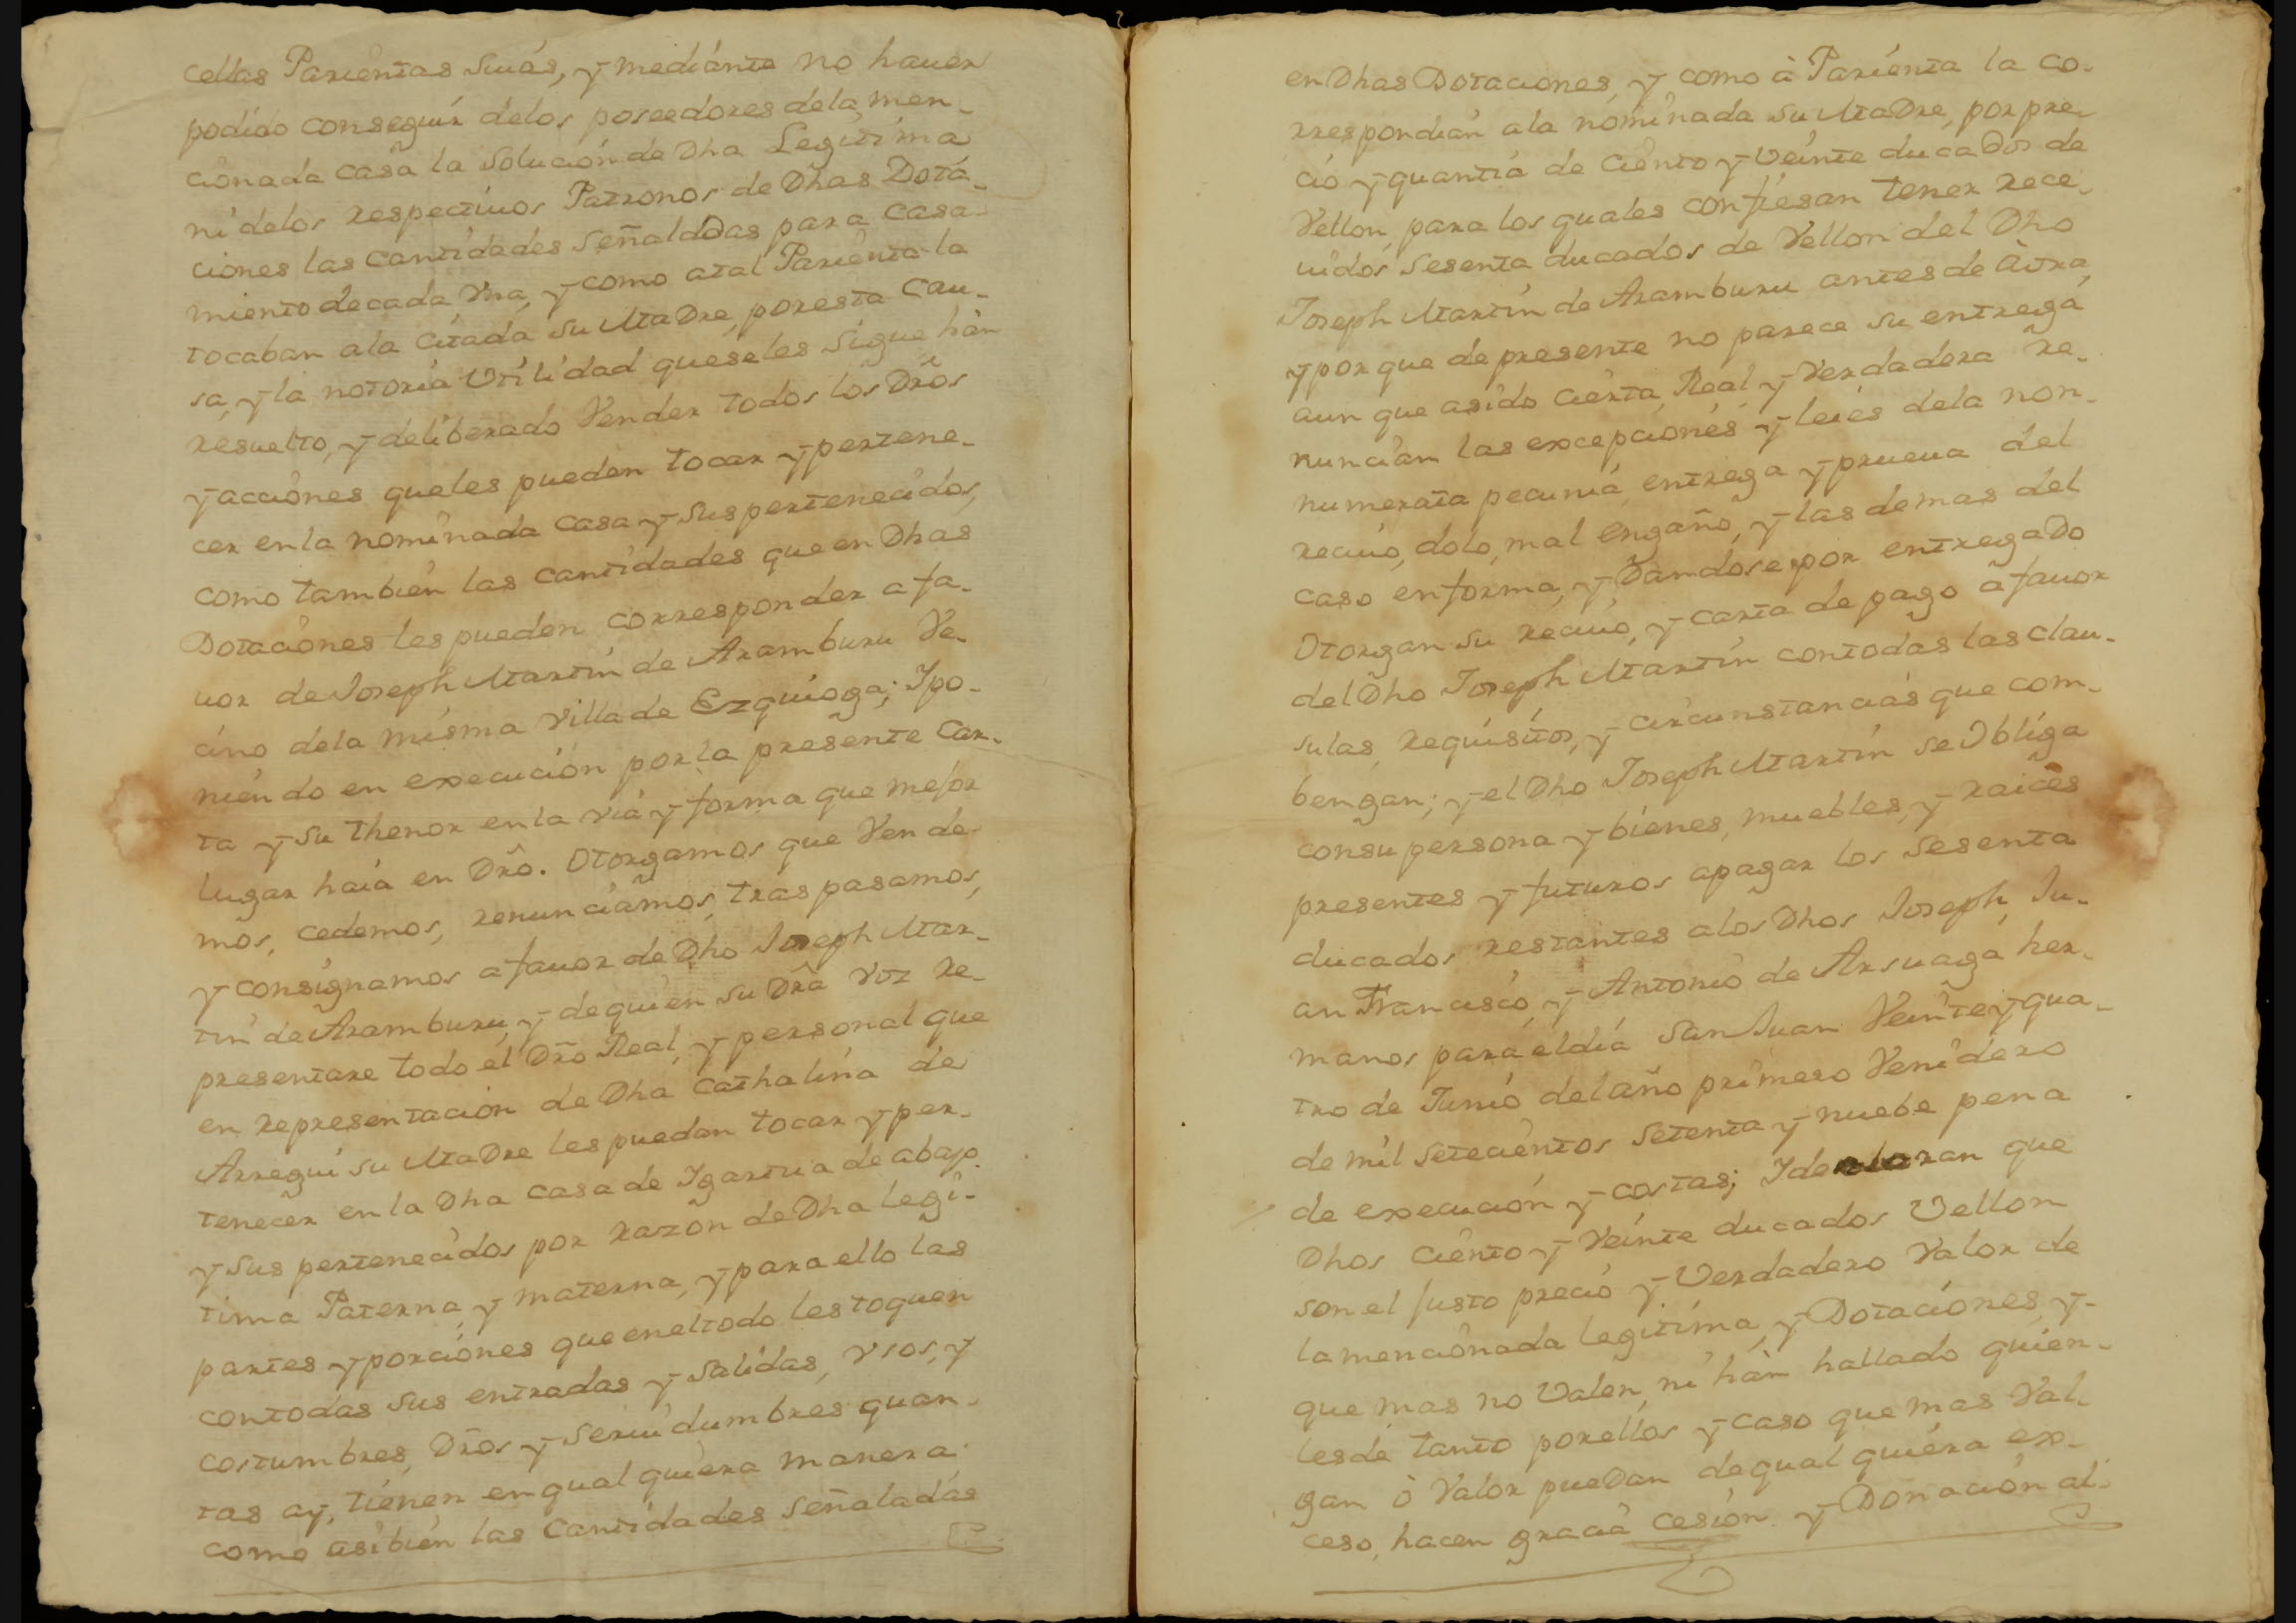 cellas Parientas suias, y mediante no hauer
podido conseguir delos poseedores dela men-
cionada casa la Solucion de Dha Legitima
ni delos respectiuos Patronos de Dhas Dota-
ciones las cantidades señaladas para casa-
miento de cada Vna, y como atal Parienta la
tocaban ala citada su Madre, por esta Cau-
sa, y la notoria Vtilidad que seles sigue hàn
resuelto, y deliberado Vender todos los Dr̃os
y acciones queles pueden tocar y pertene-
cer en la nominada Casa y sus pertenecidos,
como tambien las cantidades que en Dhas
Dotaciones les pueden corresponder a fa-
uor de Joseph Martin de Aramburu Ve-
cino dela misma villa de Ezquioga; Ypo-
niendo en execucion por la presente Car-
ta y su thenor en la via y forma que mejor
lugar haia en Dr̃o. Otorgamos que Vende-
mos, cedemos, renunciamos, traspasamos,
y consignamos a fauor de Dho Joseph Mar-
tin de Aramburu, y de quien su Dr̃a voz re-
presentare todo el Dr̃o Real, y personal que
en representacion de Dha Cathalina de
Arregui su Madre les puedan tocar y per-
tenecer en la Dha casa de Ygartua de abajo
y sus pertenecidos por razon de Dha legi-
tima Paterna, y materna, y para ello las
partes y porciones que en el todo les toquen
con todas sus entradas y salidas, vsos, y
costumbres, Dr̃os y seruidumbres quan-
tas ay, tienen en qual quiera manera
como asibien las Cantidades señaladas
en Dhas Dotaciones, y como à Parienta la co-
rrespondian ala nominada su Madre, por pre-
cio y quantia de ciento y veinte ducados de
Vellon, para los quales confiesan tener rece-
uidos sesenta ducados de Vellon del Dho
Joseph Martin de Aramburu antes de àora,
y por que de presente no parece su entrega
aun que asido cierta, Real y Verdadera re-
nuncian las excepciones y leies dela non
numerata pecunia, entrega y prueua del
reciuo, dolo, mal engaño, y las demas del
caso en forma, y Dandose por entregado
Otorgan su reciuo, y carta de pago a fauor
del Dho Joseph Martin con todas las clau-
sulas, requisitos, y circunstancias que com-
bengan; y el Dho Joseph Martin se Obliga
con su persona y bienes, muebles, y raices
presentes y futuros apagar los sesenta
ducados restantes alos Dhos Joseph, Ju-
an Francisco, y Antonio de Arsuaga her-
manos para el dia San Juan Veinte y qua-
tro de Junio del año primero Venidero
de mil setecientos setenta y nuebe pena
de execucion y costas; Y declaran que
Dhos ciento y veinte ducados Vellon
son el justo precio y Verdadero Valor de
la mencionada legitima, y Dotaciones, y
que mas no Valen, ni hàn hallado quien
les dè tanto por ellos y caso que mas Val-
gan ò Valor puedan de qual quiera ex-
ceso, hacen gracia cesion y Donacion al